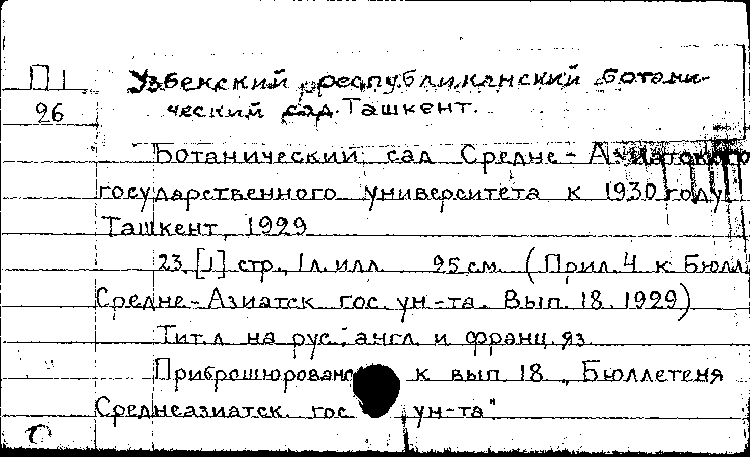 П 1
26
Узбекский республиканский ботани-
ческий сад. Ташкент.
Ботанический сад Средне-Азиатского
государственного университета к 1930 году.
Ташкент, 1929
23, [1] стр., 1 л. илл. 25 см. (Прил. 4 к Бюлл.
Средне-Азиатск. гос. ун-та. Вып. 18. 1929)
Тит. л. на рус., англ. и франц. яз.
Приброшюровано к вып. 18 „Бюллетеня
Среднеазиатск. гос. ун-та"